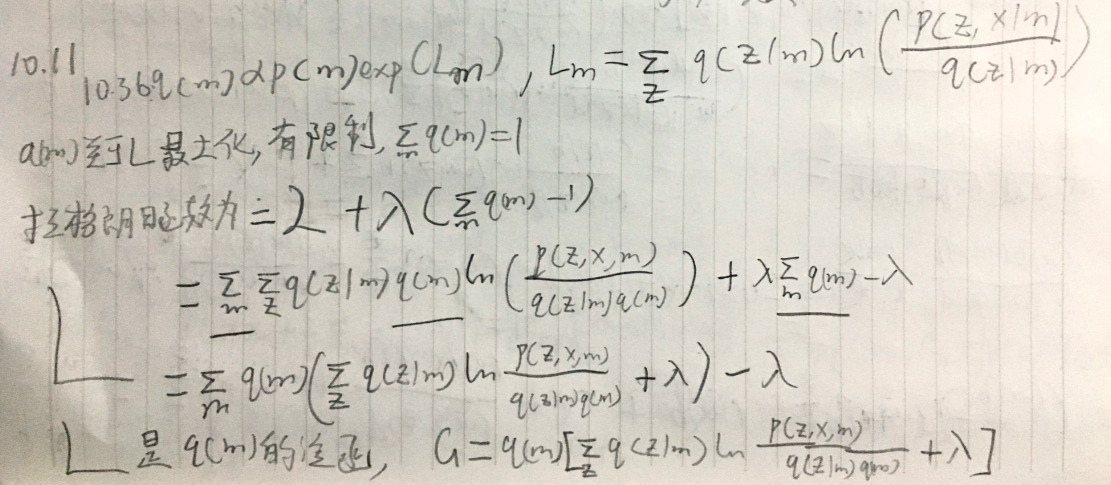 10.11
10.36 q(m) ∝ p(m) exp(Lm), Lm = Σ_z q(z|m) ln (p(z,x|m) / q(z|m))
q(m)至于L最大化, 有限制, Σ_m q(m)=1
拉格朗日函数为 = L + λ(Σ_m q(m) -1)
= Σ_m Σ_z q(z|m) q(m) ln (p(z,x,m) / q(z|m)q(m)) + λ Σ_m q(m) - λ
= Σ_m q(m) (Σ_z q(z|m) ln p(z,x,m) / q(z|m)q(m) + λ) - λ
L 是 q(m)的泛函, G = q(m)[Σ_z q(z|m) ln p(z,x,m) / q(z|m)q(m) + λ]